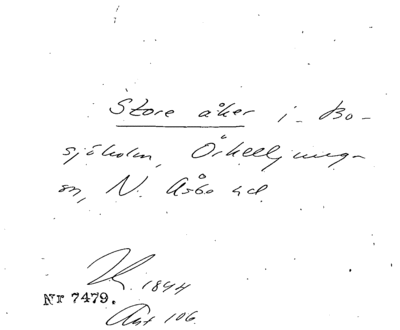 Store åker i Bo-
sjöholm, Örkelljung-
en, N. Åsbo hd.
1844
Nr 7479.
Akt 106